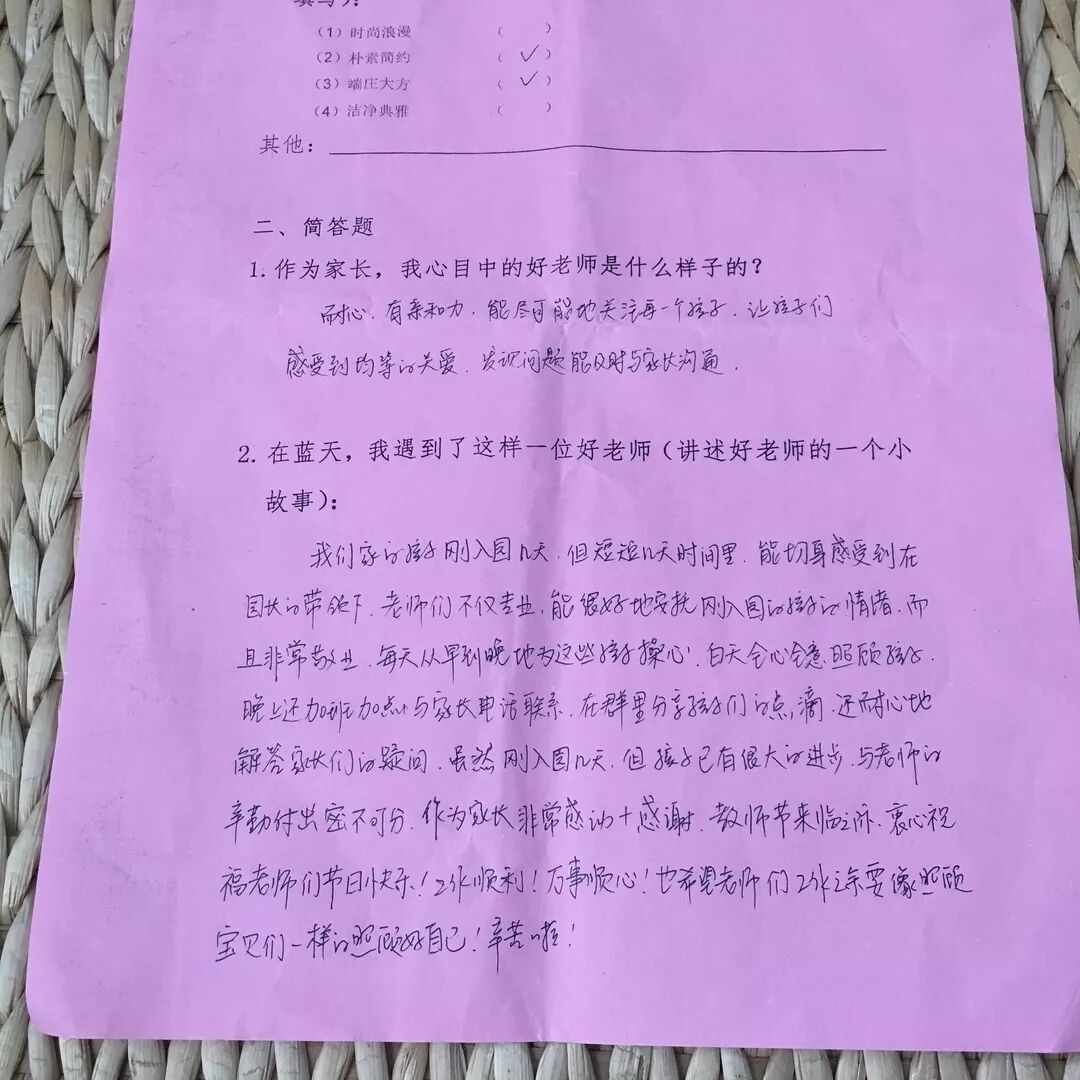 填写）：
（1）时尚浪漫 （ ）
（2）朴素简约 （ ✓ ）
（3）端庄大方 （ ✓ ）
（4）洁净典雅 （ ）
其他：
二、简答题
1. 作为家长，我心目中的好老师是什么样子的？
耐心、有亲和力、能尽可能地关注每一个孩子、让孩子们
感受到均等的关爱、发现问题能及时与家长沟通、
2. 在蓝天，我遇到了这样一位好老师（讲述好老师的一个小
故事）：
我们家的孩子刚入园几天、但短短几天时间里、能切身感受到在
园长的带领下、老师们不仅专业、能很好地安抚刚入园的孩子的情绪、而
且非常敬业、每天从早到晚地为这些孩子操心、白天全心全意照顾孩子、
晚上还加班加点与家长电话联系、在群里分享孩子们的点滴、还耐心地
解答家长们的疑问、虽然刚入园几天、但孩子已有很大的进步、与老师的
辛勤付出密不可分、作为家长非常感动+感谢、教师节来临之际、衷心祝
福老师们节日快乐！工作顺利！万事顺心！也希望老师们工作之余要像照顾
宝贝们一样的照顾好自己！辛苦啦！